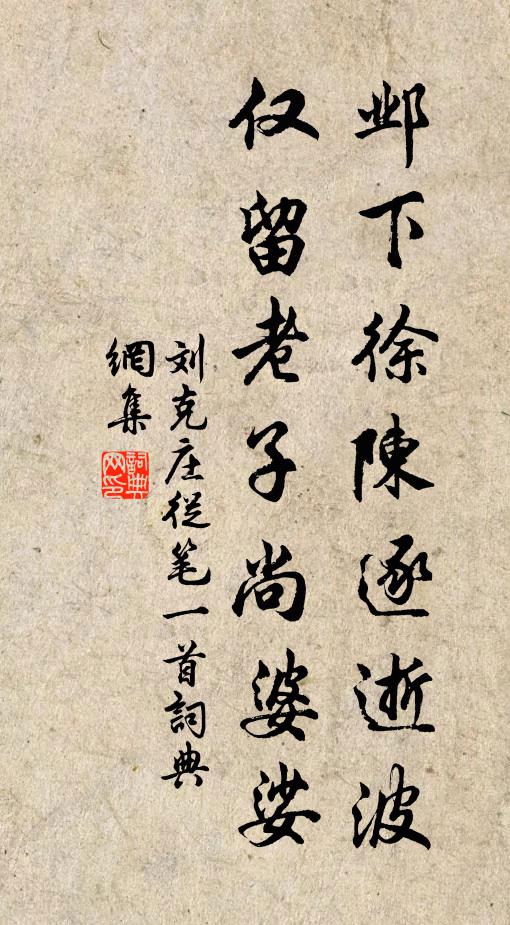 邺下徐陳逐逝波
仅留老子尚婆娑
刘克庄從笔一首詞典
網集
詞典
网印